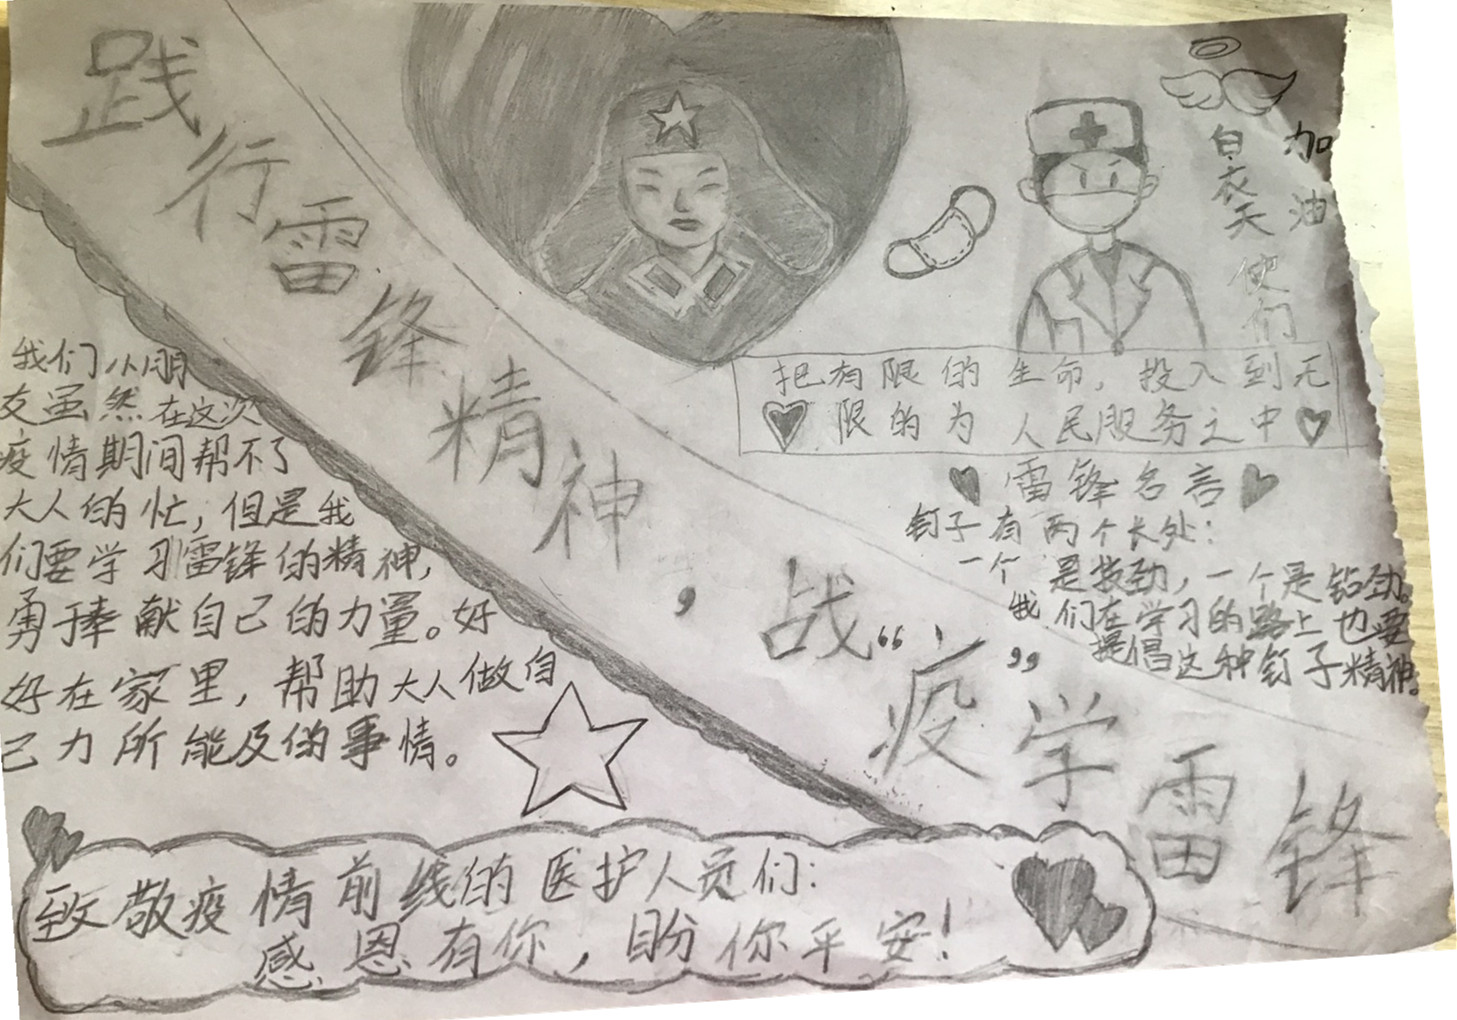 践行雷锋精神，战“疫”学雷锋
加油
白衣天使们
把有限的生命，投入到无
限的为人民服务之中
雷锋名言
钉子有两个长处：
一个是挤劲，一个是钻劲。
我们在学习的路上也要
提倡这种钉子精神。
我们小朋
友虽然在这次
疫情期间帮不了
大人的忙，但是我
们要学习雷锋的精神，
勇于奉献自己的力量。好
好在家里，帮助大人做自
己力所能及的事情。
致敬疫情前线的医护人员们：
感恩有你，盼你平安！